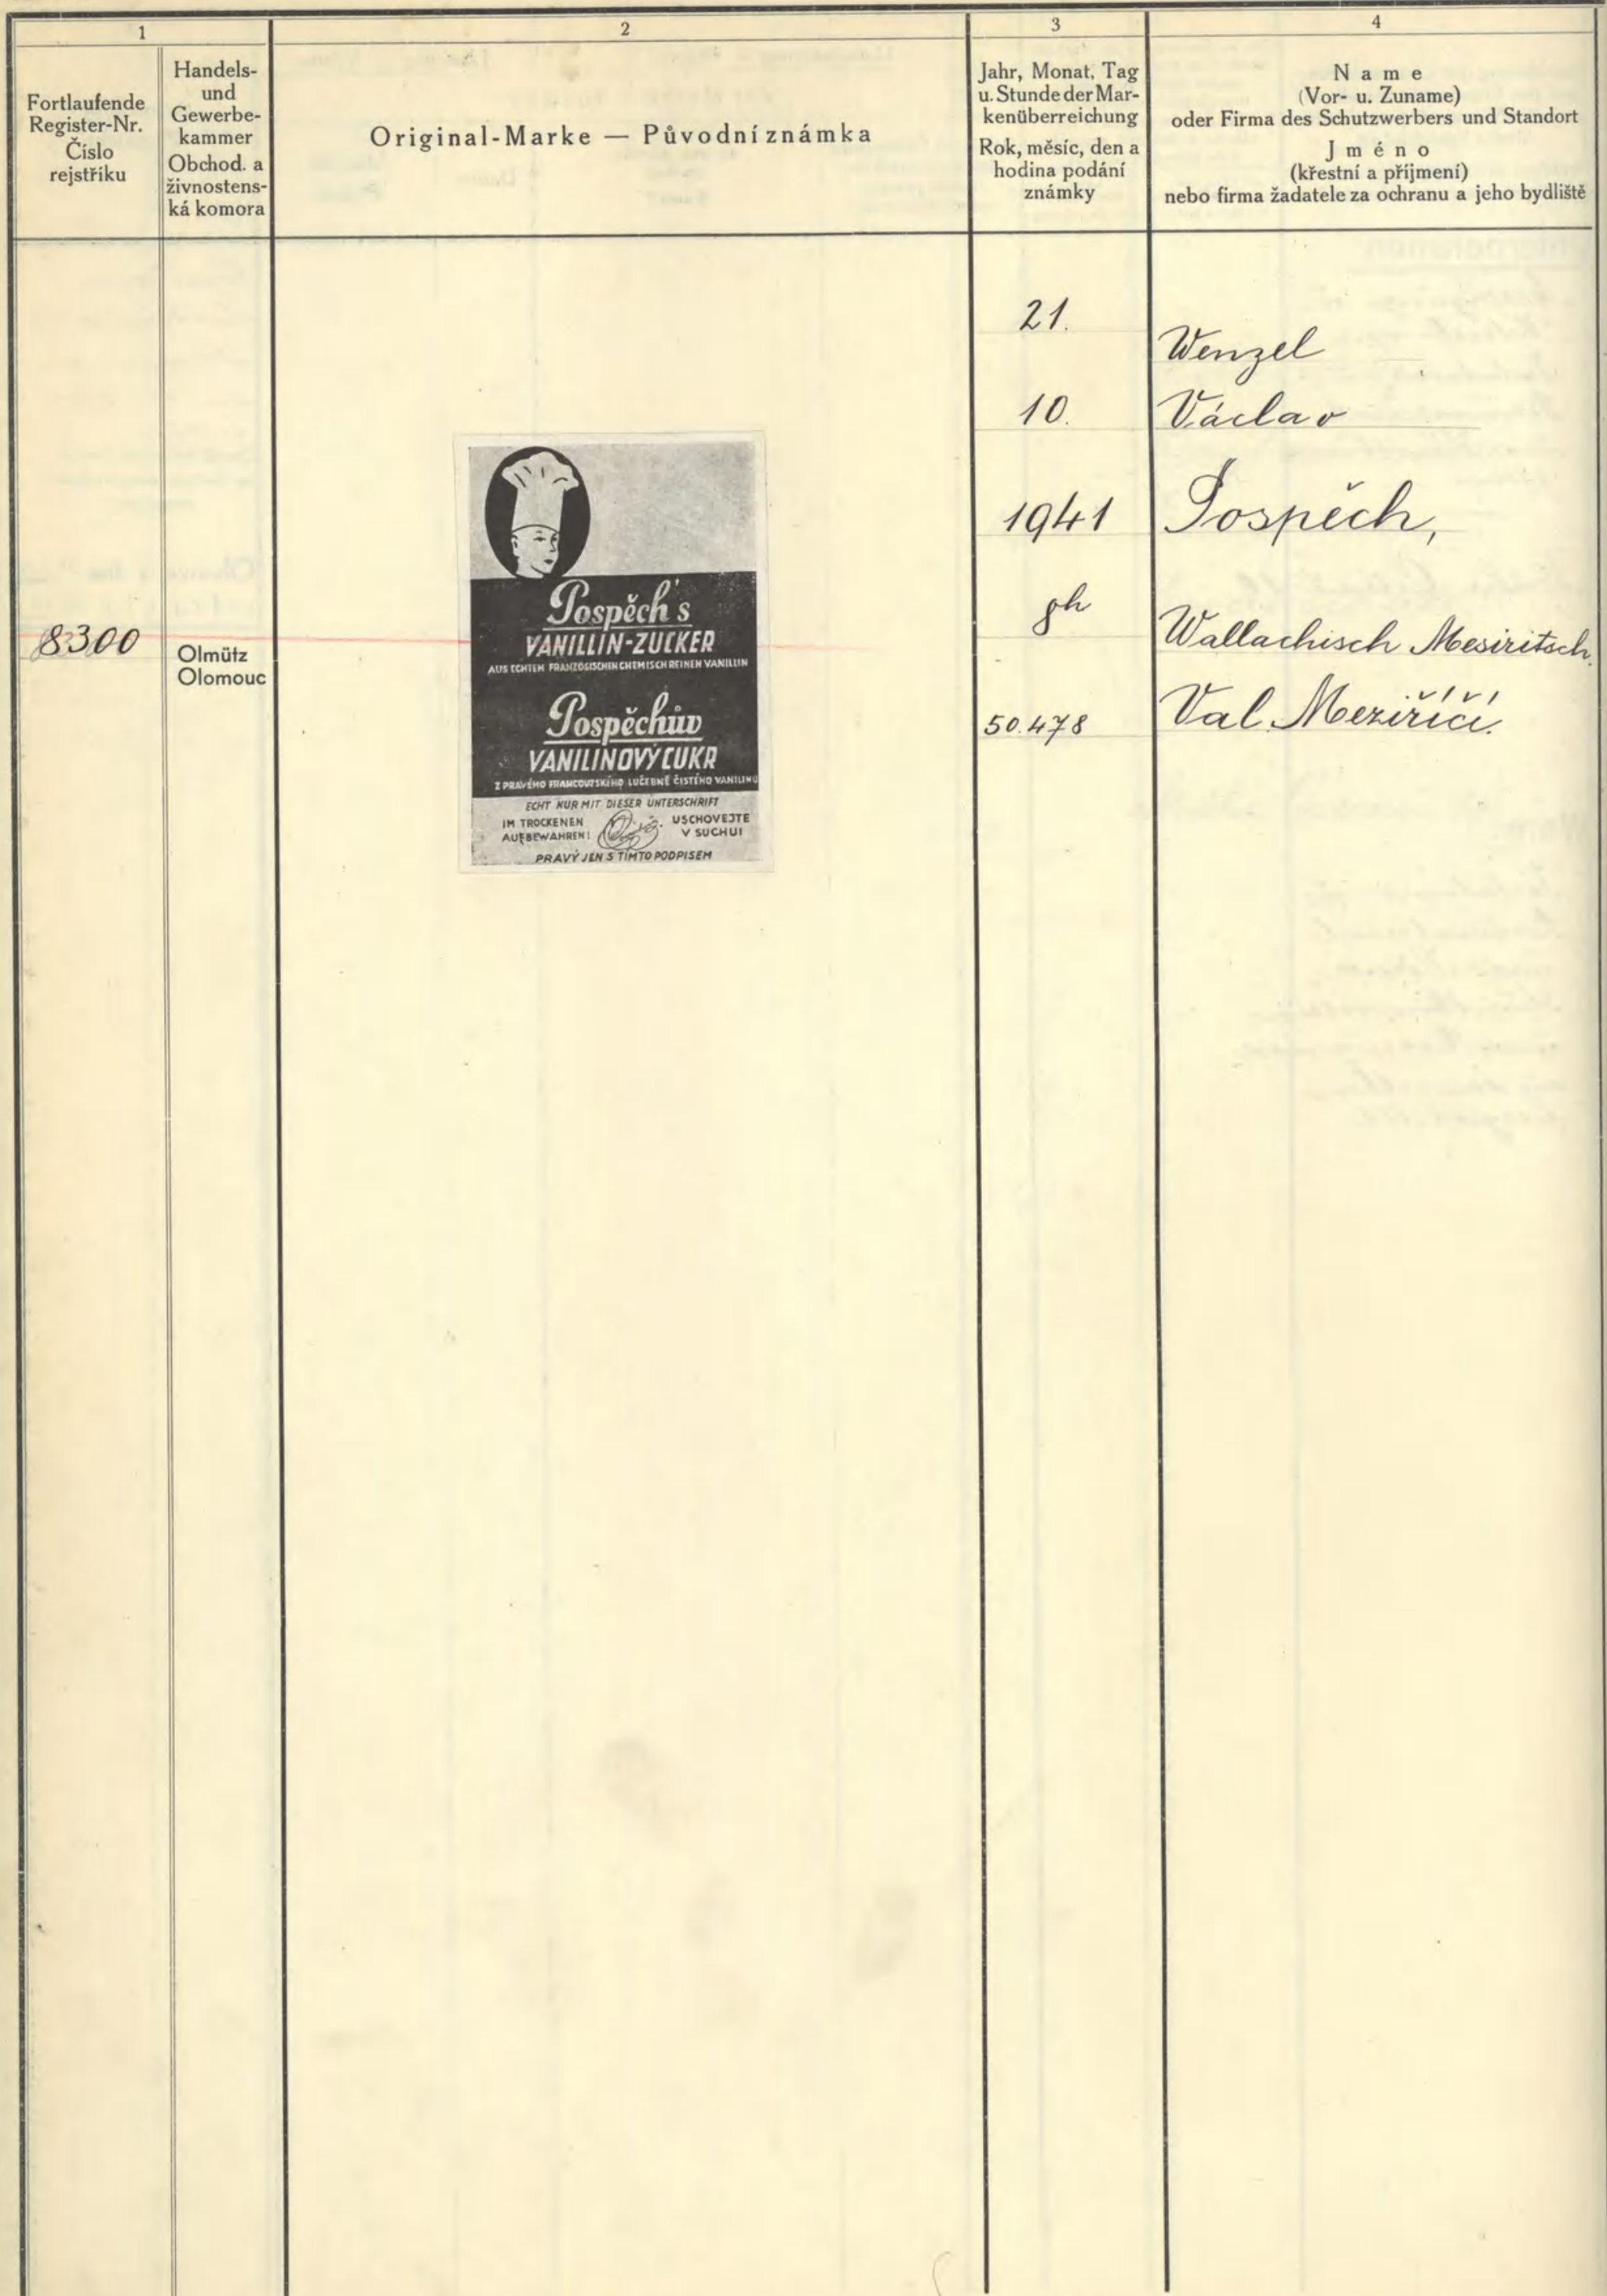 1
2
3
4
Fortlaufende
Register-Nr.
Číslo
rejstříku
Handels-
und
Gewerbe-
kammer
Obchod. a
živnostens-
ká komora
Original-Marke — Původní známka
Jahr, Monat, Tag
u. Stunde der Mar-
kenüberreichung
Rok, měsíc, den a
hodina podání
známky
Name
(Vor- u. Zuname)
oder Firma des Schutzwerbers und Standort
Jméno
(křestní a příjmení)
nebo firma žadatele za ochranu a jeho bydliště
8300
Olmütz
Olomouc
Pospěch's
VANILLIN-ZUCKER
AUS ECHTEM FRANZÖSISCHEN CHEMISCH REINEN VANILLIN
Pospěchův
VANILINOVÝ CUKR
Z PRAVÉHO FRANCOUZSKÉHO LUČEBNĚ ČISTÉHO VANILINU
ECHT NUR MIT DIESER UNTERSCHRIFT
IM TROCKENEN
AUFBEWAHREN!
USCHOVEJTE
V SUCHU!
PRAVÝ JEN S TÍMTO PODPISEM
21.
10.
1941
8h
50.478
Wenzel
Václav
Pospěch,
Wallachisch Mesiritsch.
Val. Meziříčí.